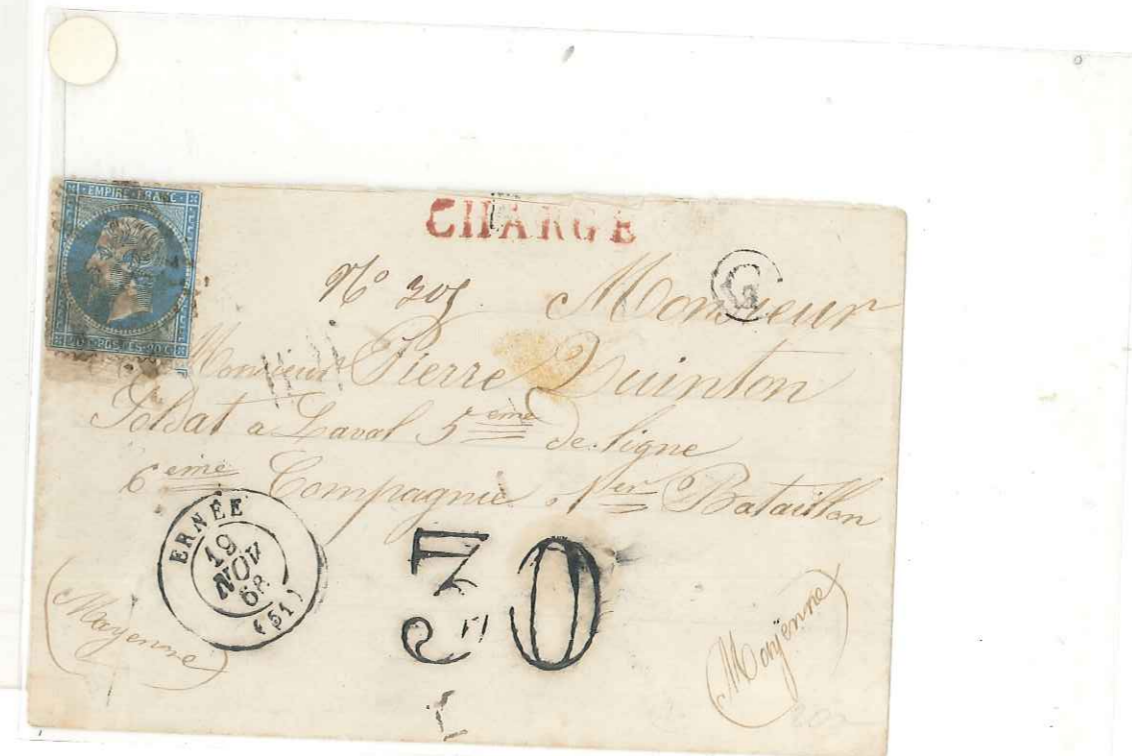 EMPIRE FRANC
20 c POSTES 20 c
CHARGE
G
No 205
Monsieur
Monsieur Pierre Quinton
Soldat a Laval 5eme de ligne
6eme Compagnie 1er Bataillon
ERNÉE
19
NOV
68
(51)
30
(Mayenne)
(Mayenne)